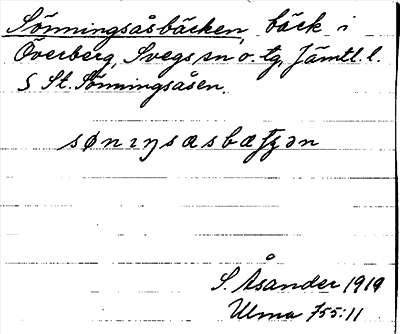 Sönningsåsbäcken, bäck i
Överberg, Svegs sn o. tg, Jämtl. l.
S St. Sönningsåsen.
sønıŋsæsbæʈʂən
S. Åsander 1919
Ulma 755:11